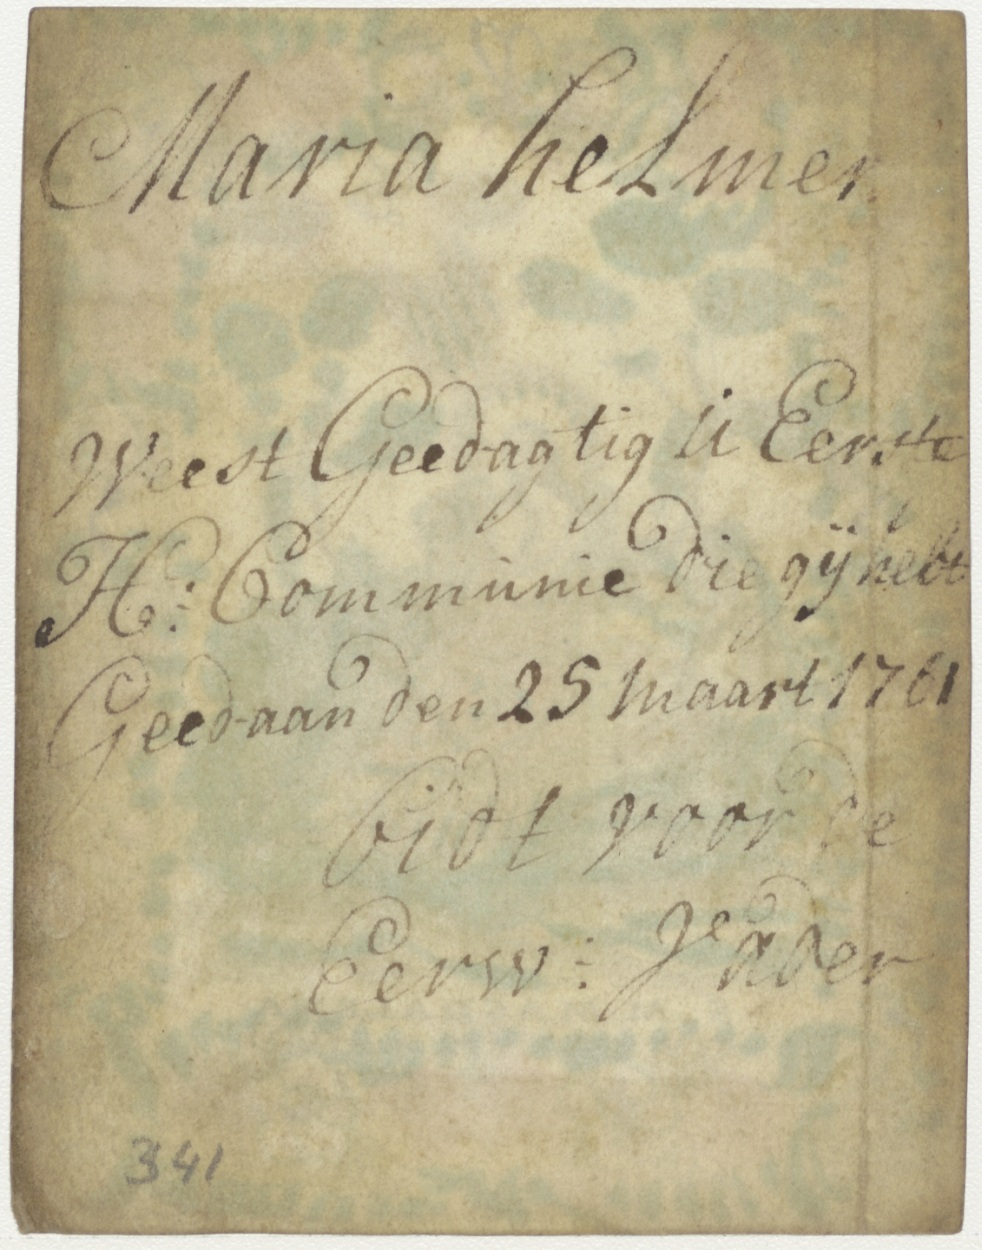 Maria helmer
Weest Geedagtig u Eerste
H: Communie die gij hebt
Geedaan den 25 maart 1761
bidt voor de
Eerw: Vader
341